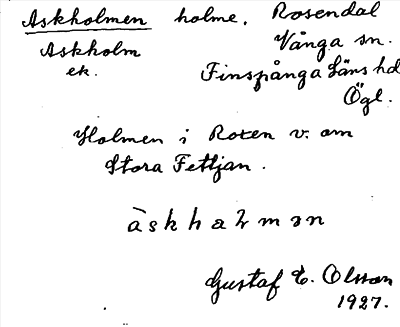 Askholmen holme. Rosendal
Askholm Vånga sn.
ek. Finspånga läns hd
Ögl.
Holmen i Roxen v. om
Stora Fettjan.
àskhaɫmən
Gustaf E. Olsson
1927.